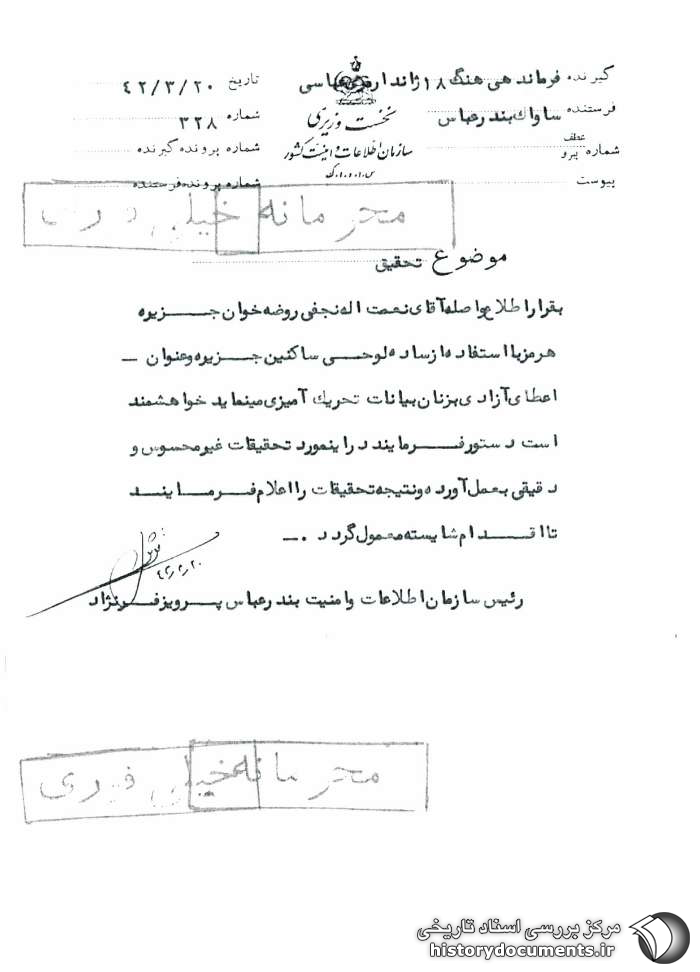 گیرنده فرماندهی هنگ ۱۸ ژاندارمری عباسی
فرستنده ساواک بندرعباس
عطف
شماره پیرو
پیوست
نخست وزیری
سازمان اطلاعات و امنیت کشور
س.ا.و.ا.ک
تاریخ ۴۲/۳/۲۰
شماره ۳۲۸
شماره پرونده گیرنده
شماره پرونده فرستنده
محرمانه خیلی فوری
موضوع تحقیق
بقرار اطلاع واصله آقای نعمت اله نجفی روضه خوان جزیره
هرمز با استفاده از ساده لوحی ساکنین جزیره و عنوان –
اعطای آزادی بزنان بیانات تحریک آمیزی مینماید خواهشمند
است دستور فرمایند در اینمورد تحقیقات غیرمحسوس و
دقیقی بعمل آورده و نتیجه تحقیقات را اعلام فرمایند
تا اقدام شایسته معمول گردد . –
۴۲/۳/۲۰
رئیس سازمان اطلاعات و امنیت بندرعباس پرویز فرنژاد
محرمانه خیلی فوری
مرکز بررسی اسناد تاریخی
historydocuments.ir